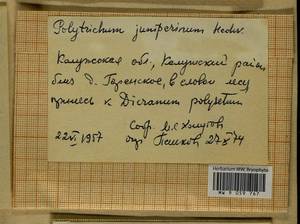 Polytrichum juniperinum Hedw.
Калужская обл., Калужский район
близ д. Горенское, в еловом лесу
примесь к Dicranum polysetum
Собр.
22 VI 1957 опр. 27 74
Herbarium MW, Bryophyta
MW 9 059 767